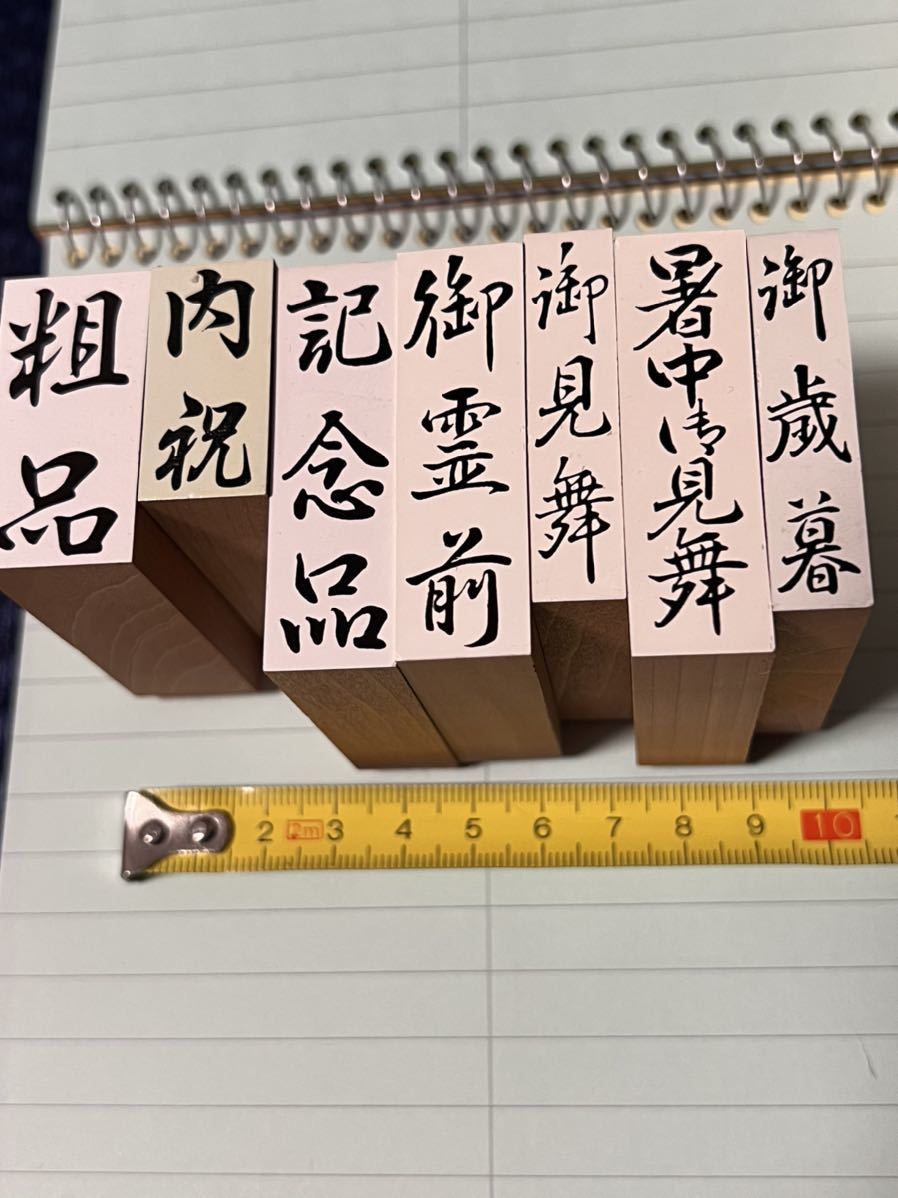 粗品
内祝
記念品
御霊前
御見舞
暑中御見舞
御歳暮
2 2m 3 4 5 6 7 8 9 10